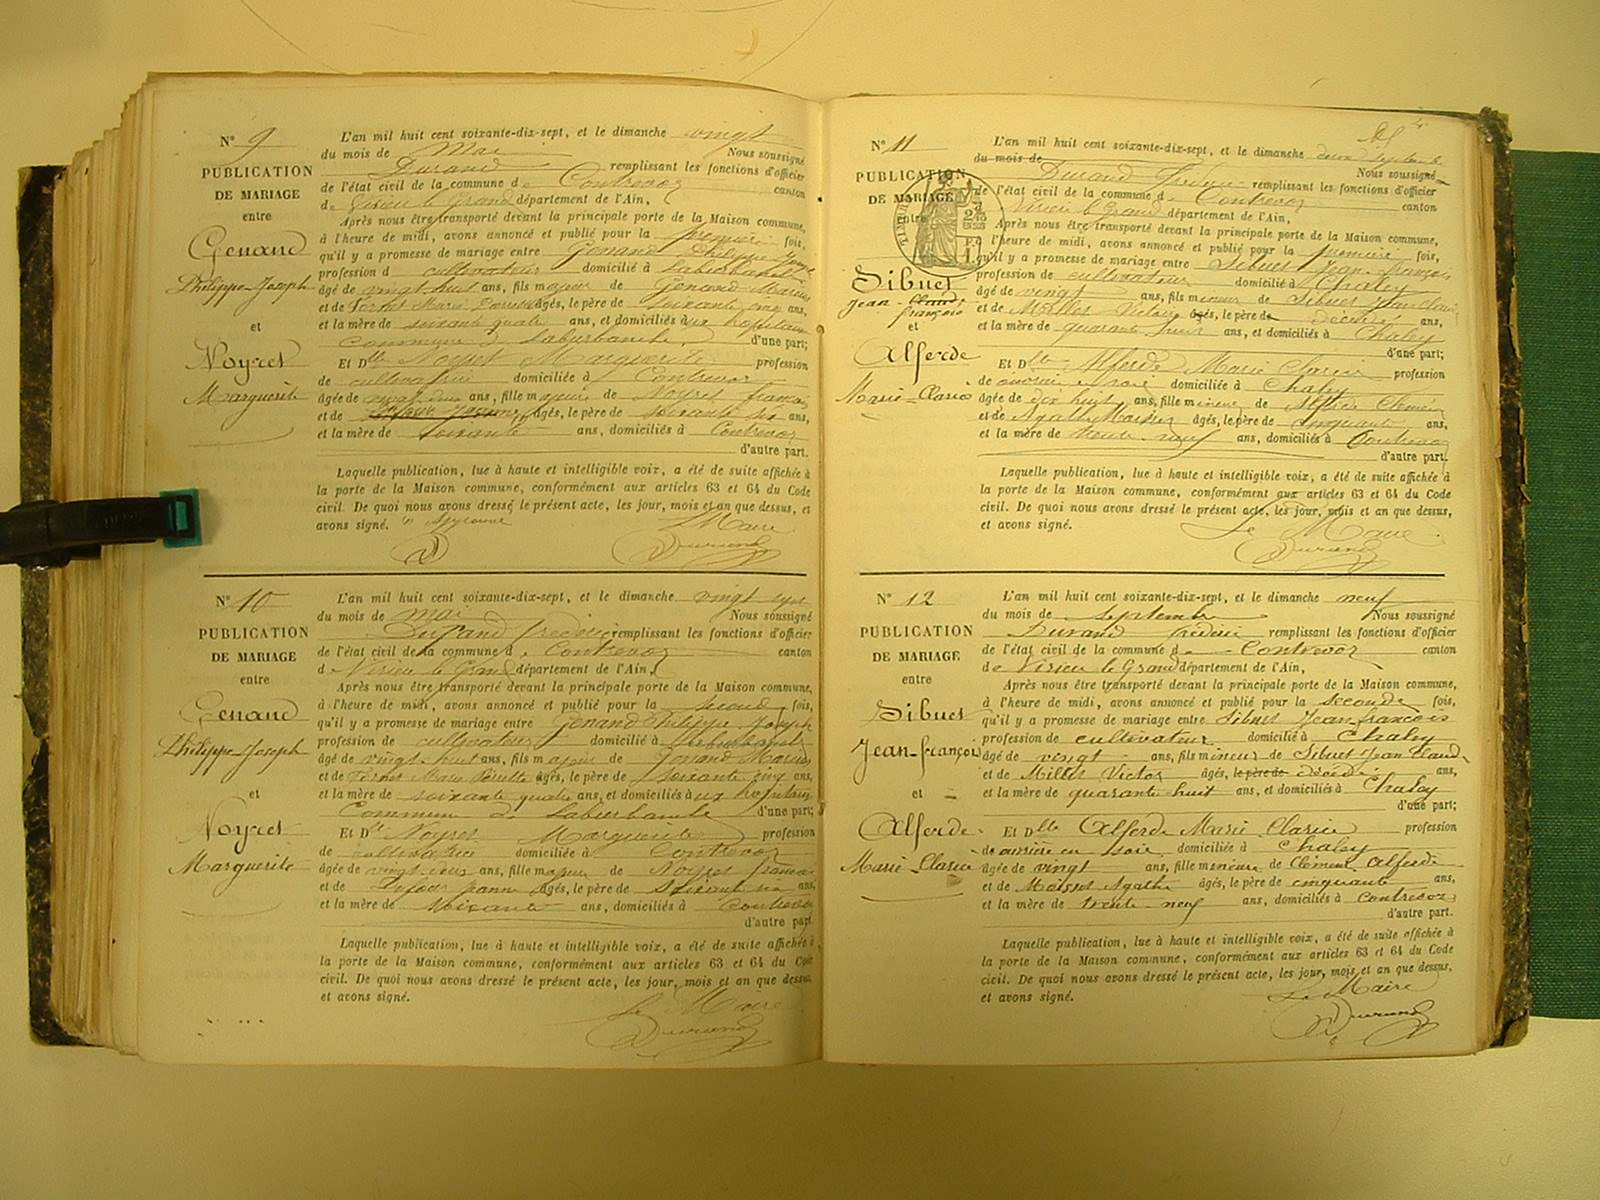 N° 9
PUBLICATION
DE MARIAGE
entre
Genand
Philippe-Joseph
et
Noyret
Marguerite
L'an mil huit cent soixante-dix-sept, et le dimanche vingt
du mois de Mai Nous soussigné
Durand remplissant les fonctions d'officier
de l'état civil de la commune de Contrevoz canton
de Virieu le Grand département de l'Ain,
Après nous être transporté devant la principale porte de la Maison commune,
à l'heure de midi, avons annoncé et publié pour la première fois,
qu'il y a promesse de mariage entre Genand Philippe Joseph
profession d cultivateur domicilié à
âgé de vingt huit ans, fils majeur de Genand Marius
et de Marie âgés, le père de soixante cinq ans,
et la mère de soixante quatre ans, et domiciliés aux hopitaux
Commune de d'une part;
Et Dlle Noyret Marguerite profession
de cultivatrice domiciliée à Contrevoz
âgée de vingt deux ans, fille majeure de Noyret françois
et de âgés, le père de soixante six ans,
et la mère de soixante ans, domiciliés à Contrevoz
d'autre part.
Laquelle publication, lue à haute et intelligible voix, a été de suite affichée à
la porte de la Maison commune, conformément aux articles 63 et 64 du Code
civil. De quoi nous avons dressé le présent acte, les jour, mois et an que dessus, et
avons signé.
Le Maire
Durand
N° 10
PUBLICATION
DE MARIAGE
entre
Genand
Philippe-Joseph
et
Noyret
Marguerite
L'an mil huit cent soixante-dix-sept, et le dimanche vingt sept
du mois de mai Nous soussigné
Durand frédéric remplissant les fonctions d'officier
de l'état civil de la commune de Contrevoz canton
de Virieu le Grand département de l'Ain,
Après nous être transporté devant la principale porte de la Maison commune,
à l'heure de midi, avons annoncé et publié pour la seconde fois,
qu'il y a promesse de mariage entre Genand Philippe Joseph
profession de cultivateur domicilié à
âgé de vingt-huit ans, fils majeur de Genand Marius
et de Marie âgés, le père de soixante cinq ans,
et la mère de soixante quatre ans, et domiciliés aux hopitaux
Commune de d'une part;
Et Dlle Noyret Marguerite profession
de cultivatrice domiciliée à Contrevoz
âgée de vingt-deux ans, fille majeure de Noyret francois
et de Dufour jeanne âgés, le père de Soixante six ans,
et la mère de soixante ans, domiciliés à Contrevoz
d'autre part.
Laquelle publication, lue à haute et intelligible voix, a été de suite affichée à
la porte de la Maison commune, conformément aux articles 63 et 64 du Code
civil. De quoi nous avons dressé le présent acte, les jour, mois et an que dessus,
et avons signé.
Le Maire
Durand
N° 11
PUBLICATION
DE MARIAGE
entre
Sibuet
Jean-Claude
françois
et
Alferde
Marie-Clarice
L'an mil huit cent soixante-dix-sept, et le dimanche deux Septembre
du mois de Nous soussigné
Durand frédéric remplissant les fonctions d'officier
de l'état civil de la commune de Contrevoz canton
Virieu le Grand département de l'Ain,
Après nous être transporté devant la principale porte de la Maison commune,
à l'heure de midi, avons annoncé et publié pour la première fois,
qu'il y a promesse de mariage entre Sibuet Jean françois
profession de cultivateur domicilié à Chaley
âgé de vingt ans, fils mineur de Sibuet Jean Claude
et de Millet Victoire âgés, le père de décédé ans,
et la mère de quarante huit ans, et domiciliés à Chaley
d'une part;
Et Dlle Alferde Marie Clarice profession
de ouvrière en soie domiciliée à Chaley
âgée de dix huit ans, fille mineure de Clément
et de Agathe âgés, le père de cinquante ans,
et la mère de trente-neuf ans, domiciliés à Contrevoz
d'autre part.
Laquelle publication, lue à haute et intelligible voix, a été de suite affichée à
la porte de la Maison commune, conformément aux articles 63 et 64 du Code
civil. De quoi nous avons dressé le présent acte, les jour, mois et an que dessus,
et avons signé.
Le Maire
Durand
N° 12
PUBLICATION
DE MARIAGE
entre
Sibuet
Jean-françois
et
Alferde
Marie-Clarice
L'an mil huit cent soixante-dix-sept, et le dimanche neuf
du mois de septembre Nous soussigné
Durand frédéric remplissant les fonctions d'officier
de l'état civil de la commune de Contrevoz canton
de Virieu le Grand département de l'Ain,
Après nous être transporté devant la principale porte de la Maison commune,
à l'heure de midi, avons annoncé et publié pour la seconde fois,
qu'il y a promesse de mariage entre Sibuet Jean-francois
profession de cultivateur domicilié à Chaley
âgé de vingt ans, fils mineur de Sibuet Jean Claude
et de Millet Victoz âgés, le père de décédé ans,
et la mère de quarante huit ans, et domiciliés à Chaley
d'une part;
Et Dlle Alferde Marie Clarice profession
de ouvrière en soie domiciliée à Chaley
âgée de vingt ans, fille mineure de Clément Alferde
et de Moisset Agathe âgés, le père de cinquante ans,
et la mère de trente-neuf ans, domiciliés à Contrevoz
d'autre part.
Laquelle publication, lue à haute et intelligible voix, a été de suite affichée à
la porte de la Maison commune, conformément aux articles 63 et 64 du Code
civil. De quoi nous avons dressé le présent acte, les jour, mois et an que dessus,
et avons signé.
Le Maire
Durand